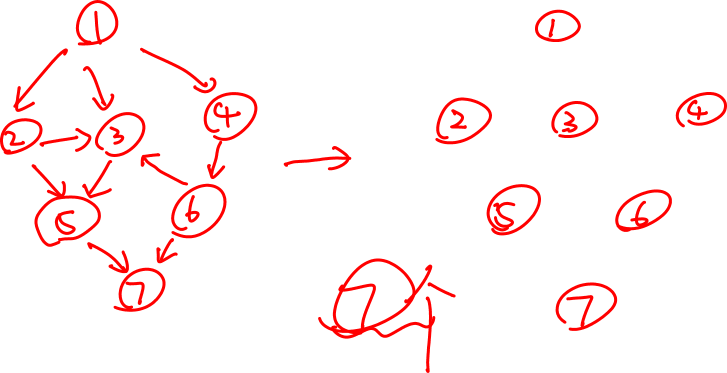 1
2 3 4
5 6
7
1
2 3 4
5 6
7
7个